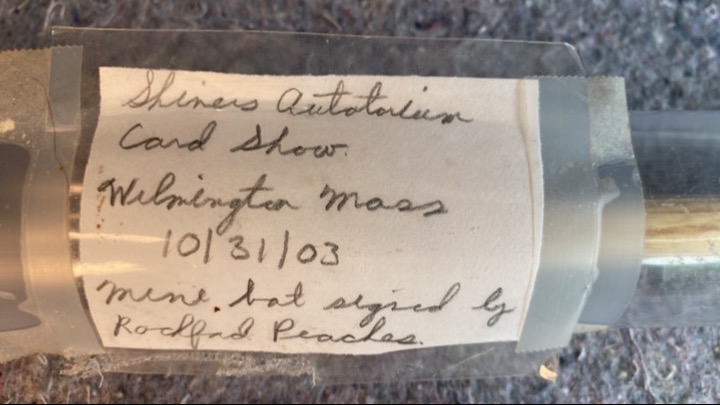 Shiners Autotorium
Card Show.
Wilmington Mass
10/31/03
mine bat signed by
Rockford Peaches.